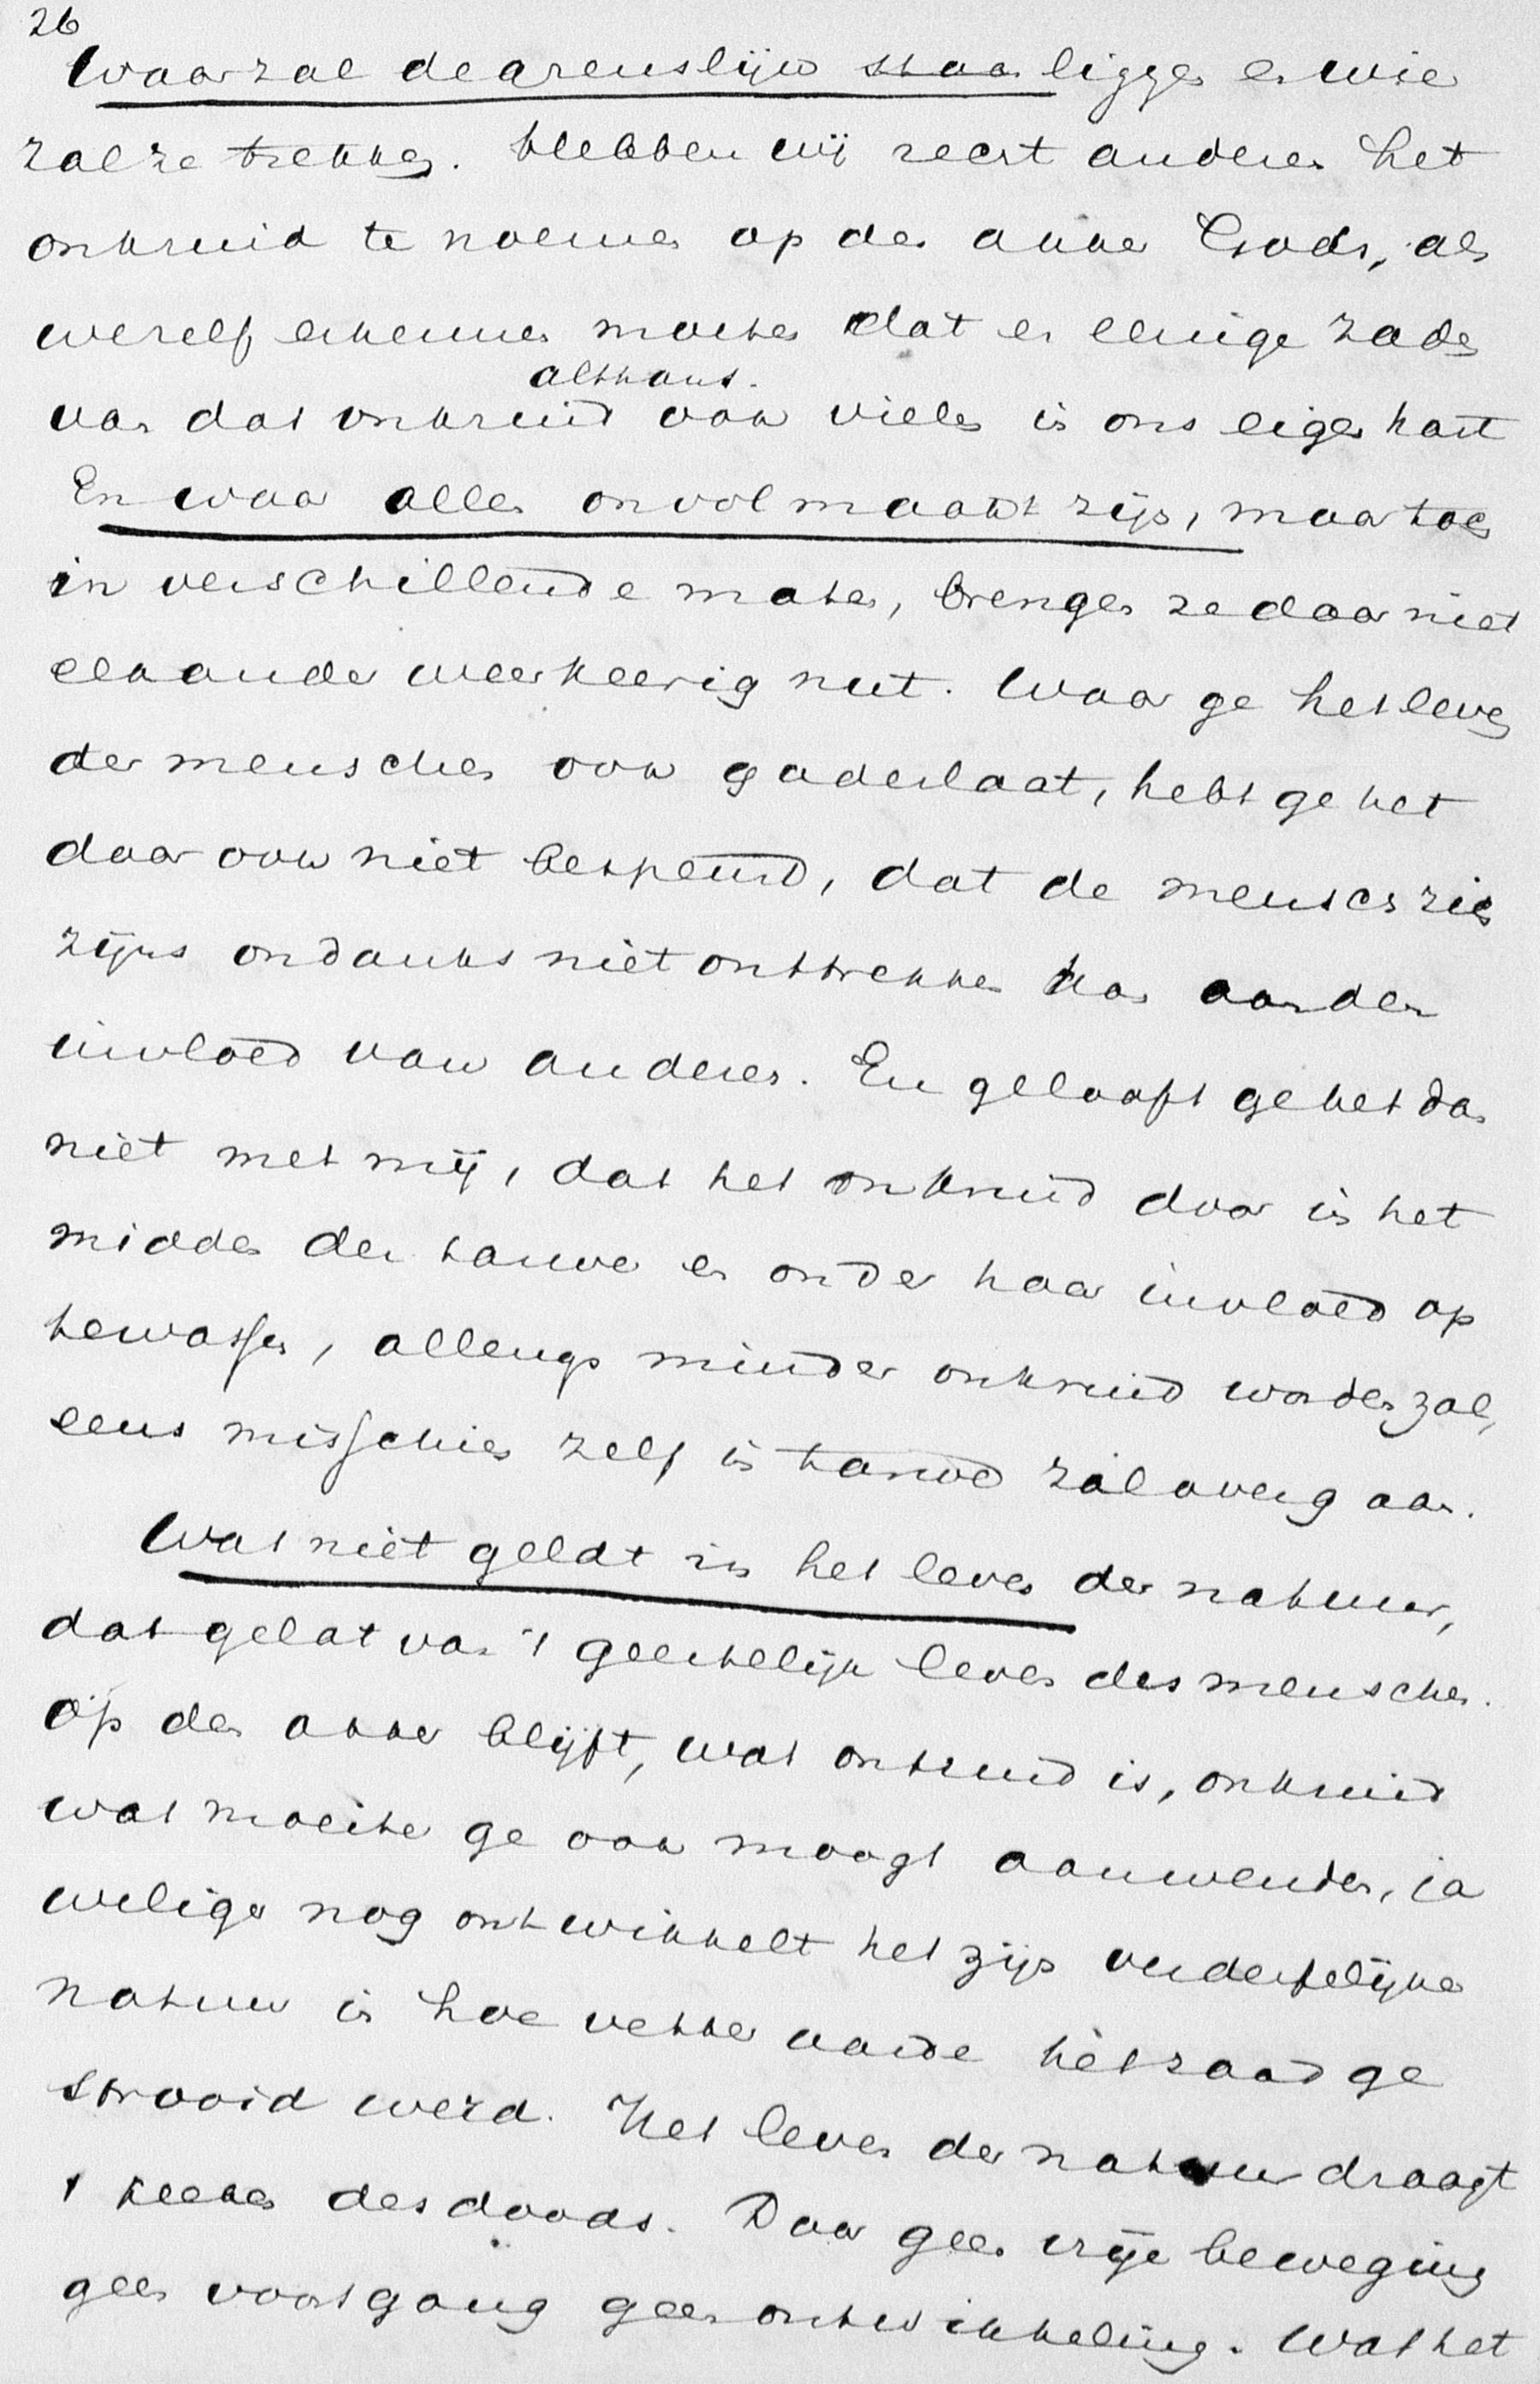 26
Waar zal de grenslijn staan liggen en wie
zal ze trekken. Hebben wij recht anderen het
onkruid te noemen op den akker Gods, als
we zelf erkennen moeten dat er eenige zaden
althans.
van dat onkruid ook vielen in ons eigen hart
En waar allen onvolmaakt zijn, maar toch
in verschillende maten, brengen ze daar niet
elkander weerkeerig nut. Waar ge het leven
der menschen ook gadeslaat, hebt ge het
daar ook niet bespeurd, dat de mensch zich
zijns ondanks niet onttrekken kan aan den
invloed van anderen. En gelooft ge het dan
niet met mij, dat het onkruid door in het
midden der tarwe en onder haar invloed op
te wassen, allengs minder onkruid worden zal,
eens misschien zelf in tarwe zal overgaan.
Wat niet geldt in het leven der natuur,
dat geldt van 't geestelijk leven des menschen.
Op den akker blijft, wat onkruid is, onkruid
wat moeite ge ook moogt aanwenden, ja
weliger nog ontwikkelt het zijn verderfelijke
natuur in hoe vetter aarde het zaad ge
strooid werd. Het leven der natuur draagt
't teeken des doods. Daar geen vrije beweging
geen voortgang geen ontwikkeling. Wat het